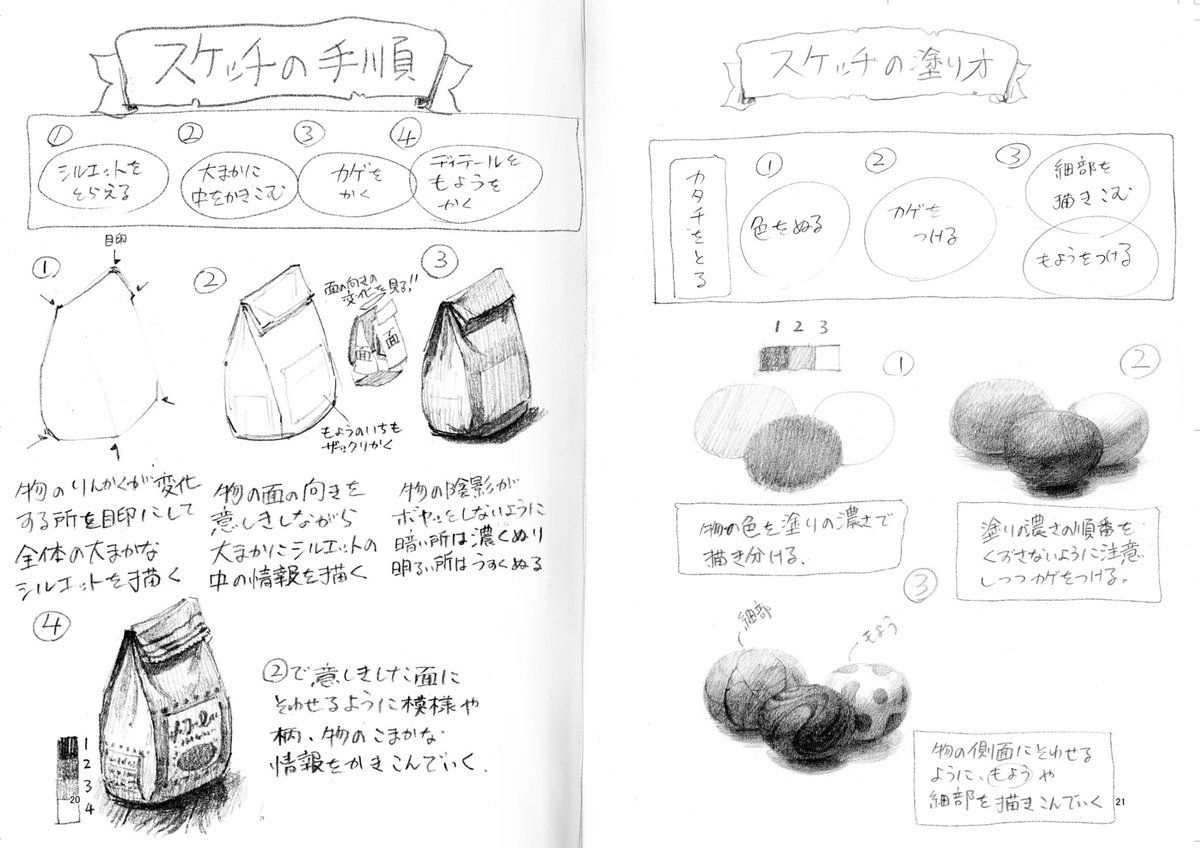 スケッチの手順
①
シルエットを
とらえる
②
大まかに
中をかきこむ
③
カゲを
かく
④
ディテールを
もようを
かく
①
目印
②
面の向きの
変化を見る!!
面
面
もようのいちも
ザックリかく
③
物のりんかくが変化
する所を目印にして
全体の大まかな
シルエットを描く
物の面の向きを
意しきしながら
大まかにシルエットの
中の情報を描く
物の陰影が
ボヤッとしないように
暗い所は濃くぬり
明るい所はうすくぬる
④
1
2
3
4
②で意しきした面に
そわせるように模様や
柄、物のこまかな
情報をかきこんでいく.
20
スケッチの塗り方
カタチをとる
①
色をぬる
②
カゲを
つける
③
細部を
描きこむ
もようをつける
1 2 3
①
②
物の色を塗りの濃さで
描き分ける.
塗りの濃さの順番を
くずさないように注意
しつつカゲをつける。
③
細部
もよう
物の側面にそわせる
ように、もようや
細部を描きこんでいく
21